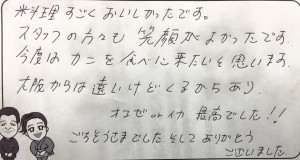 料理すごくおいしかったです。
スタッフの方々も笑顔がよかったです。
今度はカニを食べに来たいと思います。
大阪からは遠いけどくるからあり
オコゼorイカ 最高でした!!
ごちそうさまでした。そして ありがとう
ございました。